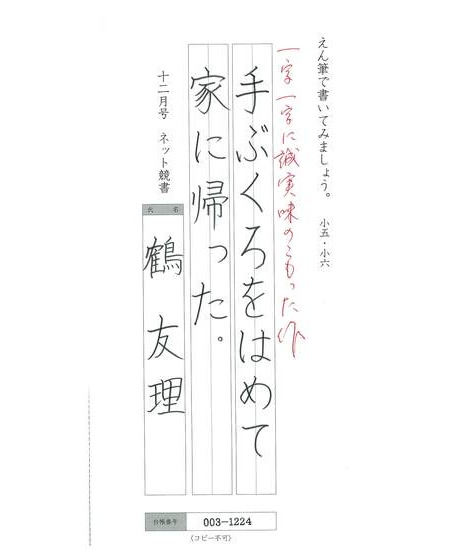 えん筆で書いてみましょう。 小五・小六
一字一字に誠実味のこもった作
手ぶくろをはめて
家に帰った。
十二月号 ネット競書
氏名
鶴友理
台帳番号 003-1224
(コピー不可)